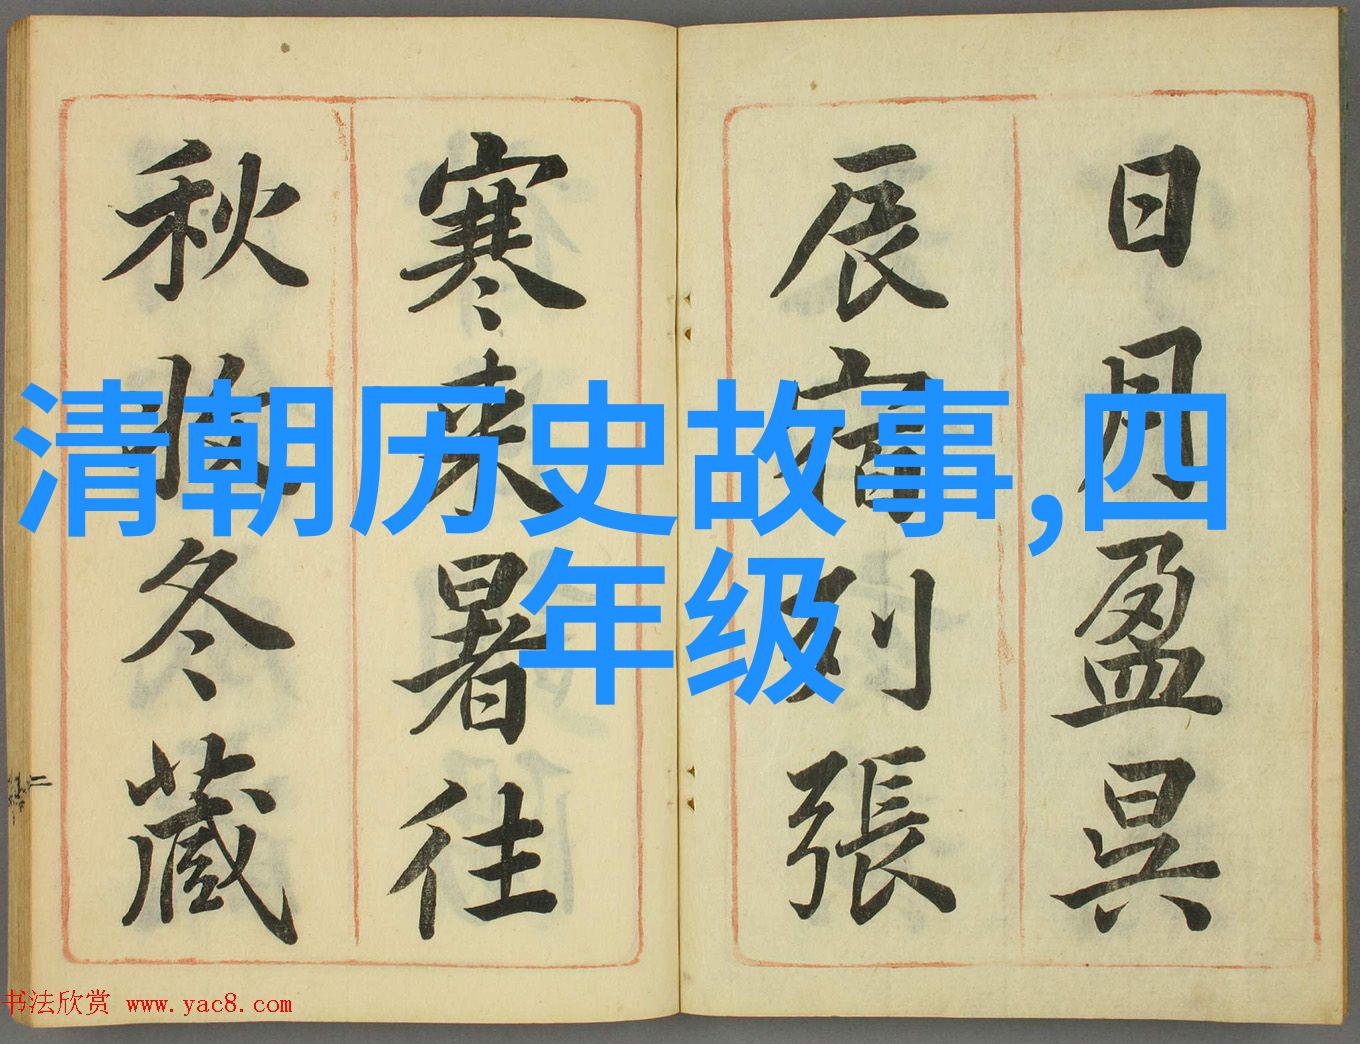 日月盈昃
辰宿列張
寒來暑往
秋收冬藏
清朝历史故事,四
年级
书法欣赏 www.yac8.com